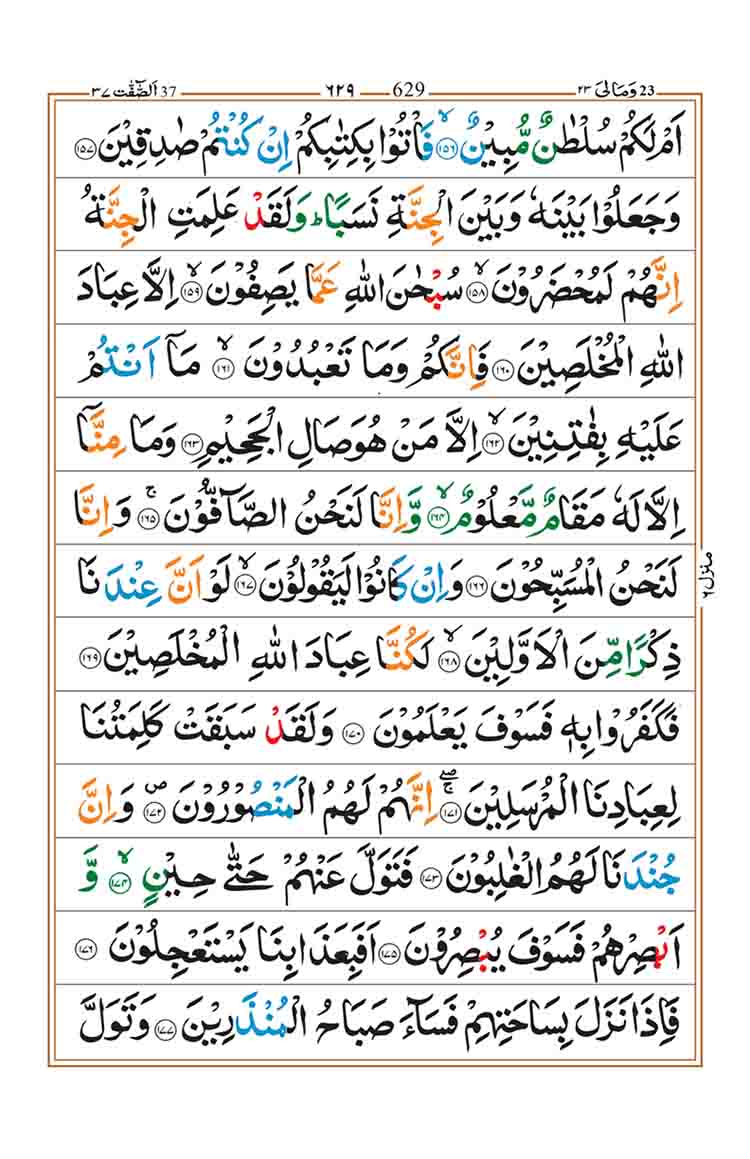 وَمَا لِیَ ٢٣ 23 629 ٦٢٩ اَلصّٰٓفّٰت ٣٧ 37
اَمْ لَكُمْ سُلْطٰنٌ مُّبِیْنٌ ۙ﴿۱۵۶﴾ فَاْتُوْا بِكِتٰبِكُمْ اِنْ كُنْتُمْ صٰدِقِیْنَ ﴿۱۵۷﴾
وَجَعَلُوْا بَیْنَهٗ وَبَیْنَ الْجِنَّةِ نَسَبًا ؕ وَلَقَدْ عَلِمَتِ الْجِنَّةُ
اِنَّهُمْ لَمُحْضَرُوْنَ ۙ﴿۱۵۸﴾ سُبْحٰنَ اللهِ عَمَّا یَصِفُوْنَ ۙ﴿۱۵۹﴾ اِلَّا عِبَادَ
اللهِ الْمُخْلَصِیْنَ ﴿۱۶۰﴾ فَاِنَّكُمْ وَمَا تَعْبُدُوْنَ ۙ﴿۱۶۱﴾ مَاۤ اَنْتُمْ
عَلَیْهِ بِفٰتِنِیْنَ ۙ﴿۱۶۲﴾ اِلَّا مَنْ هُوَ صَالِ الْجَحِیْمِ ﴿۱۶۳﴾ وَمَا مِنَّاۤ
اِلَّا لَهٗ مَقَامٌ مَّعْلُوْمٌ ۙ﴿۱۶۴﴾ وَّاِنَّا لَنَحْنُ الصَّآفُّوْنَ ۚ﴿۱۶۵﴾ وَاِنَّا
لَنَحْنُ الْمُسَبِّحُوْنَ ﴿۱۶۶﴾ وَاِنْ كَانُوْا لَیَقُوْلُوْنَ ۙ﴿۱۶۷﴾ لَوْ اَنَّ عِنْدَنَا
ذِكْرًا مِّنَ الْاَوَّلِیْنَ ۙ﴿۱۶۸﴾ لَكُنَّا عِبَادَ اللهِ الْمُخْلَصِیْنَ ﴿۱۶۹﴾
فَكَفَرُوْا بِهٖ فَسَوْفَ یَعْلَمُوْنَ ﴿۱۷۰﴾ وَلَقَدْ سَبَقَتْ كَلِمَتُنَا
لِعِبَادِنَا الْمُرْسَلِیْنَ ۚۖ﴿۱۷۱﴾ اِنَّهُمْ لَهُمُ الْمَنْصُوْرُوْنَ ۪﴿۱۷۲﴾ وَاِنَّ
جُنْدَنَا لَهُمُ الْغٰلِبُوْنَ ﴿۱۷۳﴾ فَتَوَلَّ عَنْهُمْ حَتّٰی حِیْنٍ ۙ﴿۱۷۴﴾ وَّ
اَبْصِرْهُمْ فَسَوْفَ یُبْصِرُوْنَ ﴿۱۷۵﴾ اَفَبِعَذَابِنَا یَسْتَعْجِلُوْنَ ﴿۱۷۶﴾
فَاِذَا نَزَلَ بِسَاحَتِهِمْ فَسَآءَ صَبَاحُ الْمُنْذَرِیْنَ ﴿۱۷۷﴾ وَتَوَلَّ
منزل ٦